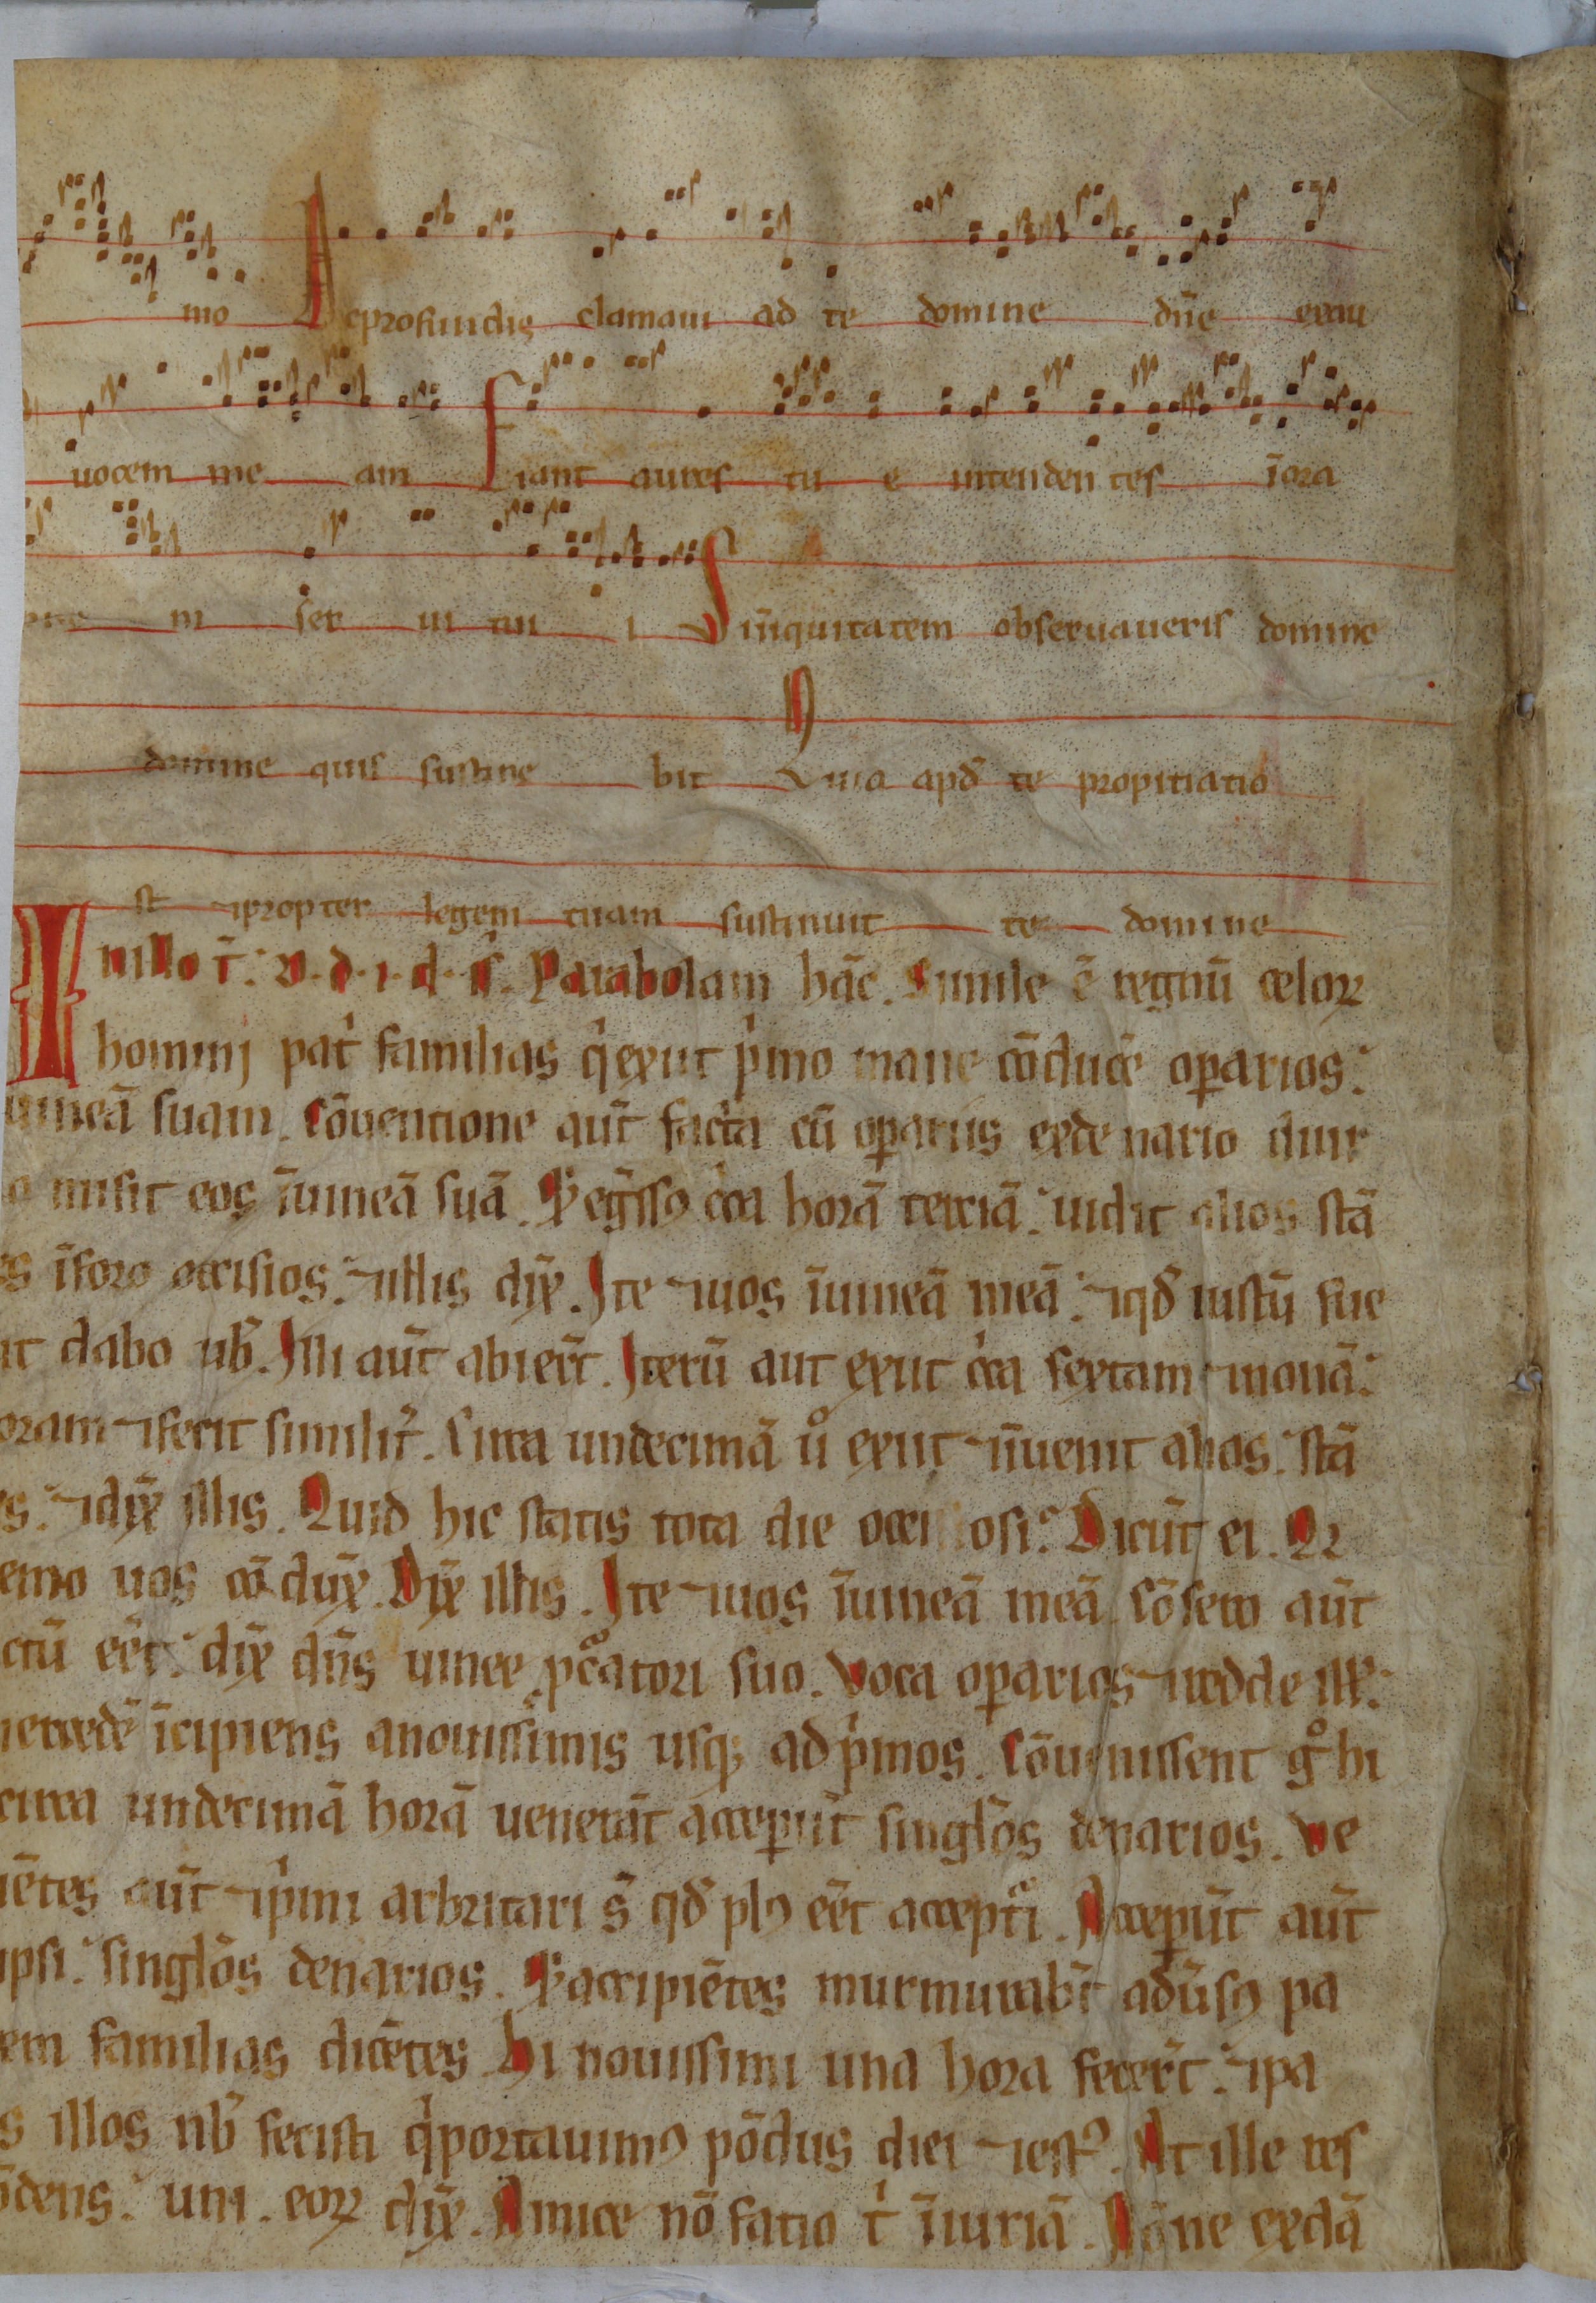 mo Deprofundis clamaui ad te domine dn̄e exau
uocem me am Fiant aures tu e intenden tes īora
one in ser ui tui i Siīniquitatem obseruaueris domine
domine quis sustine bit Quia apđ te propitiatio
st ⁊propter legem tuam sustinuit te domine
Nillo t̄. D. d. i. d. s̄. Parabolam hāc. Simile ē regnū celoꝝ
homini pat̉ familias q̉ exiit p̉mo mane cōduc̄e oꝑarios.
uineā suam. Cōuentione aūt facta cū oꝑariis exde nario diur
o misit eos īuineā suā. Et eḡssꝰ c̉ca horā terciā. uidit alios stā
es īforo occisios. ⁊illis dix̄. Ite ⁊uos īuineā meā. ⁊qđ iustū fue
it dabo ub̄. Illi aūt abier̄t. Iterū aut exiit c̉ca sextam ⁊nonā.
oram ⁊fecit similit̉. Circa undecimā ů exiit ⁊īuenit alios. stā
es. ⁊dix̄ illis. Quid hic statis tota die occi osi. Dicūt ei. Qꝛ
emo uos cō dux̄. Dix̄ illis. Ite ⁊uos īuineā meā. Cōsero aūt
ctū eēt. dix̄ dn̄s uinee ꝓcatori suo. Voca oꝑarios ⁊redde ill̄.
mercedē īcipiens anouissimis usqꝫ ad p̉mos. Cōuenissent g̊ hi
circa undecimā horā uenerāt acceꝑūt singl̄os denarios. Ve
iētes aūt ⁊p̉mi arbitrari s̄ qđ plꝰ eēt accept̉i. Acceꝑūt aūt
ipsi. singl̄os denarios. Et accipiētes murmurab̄t adūsꝰ pa
em familias dicētes. Hi nouissimi una hora fecer̄t. ⁊pa
s illos nb̄ fecisti q̉ portauimꝰ pōdus diei ⁊estꝰ. At ille res
ōdens. uni. eoꝝ dix̄. Amice nō facio t̉ īiuriā. Nōne exdā